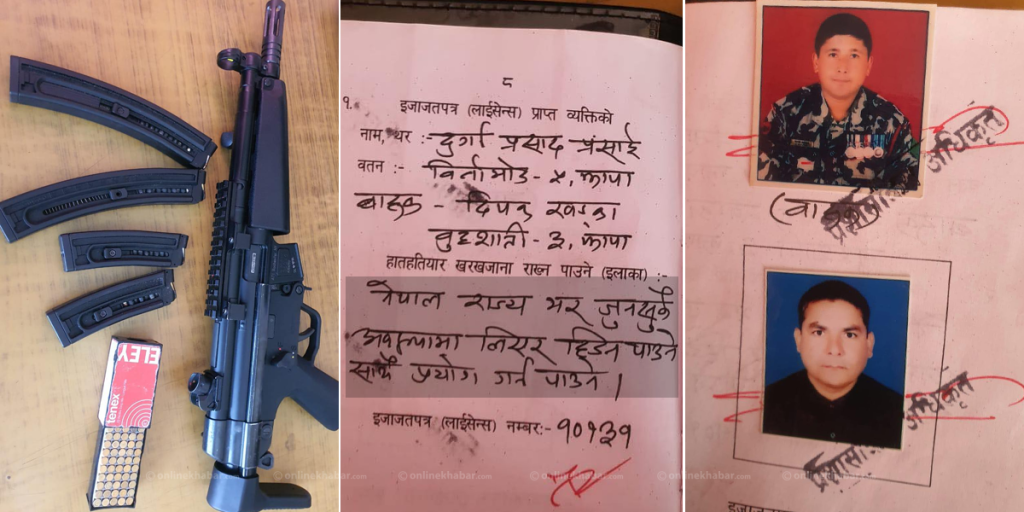 ELEY
tenex
८
१.
इजाजतपत्र (लाईसेन्स) प्राप्त व्यक्तिको
नाम, थर :- दुर्गा प्रसाद प्रसाई
वतन :- विर्तामोड - ५, झापा
बाहक - दिपक खड्का
बुद्धशान्ती - ३, झापा
हातहतियार खरखजाना राख्न पाउने (इलाका) :-
नेपाल राज्य भर जुनसुकै
अवस्थामा लिएर हिडन पाउने
साथै प्रयोग गर्न पाउने ।
इजाजतपत्र (लाईसेन्स) नम्बर:- १०१३१
अधिकृत
अधिकृत
onlinekhabar.com
onlinekhabar.com
onlinekhabar.com